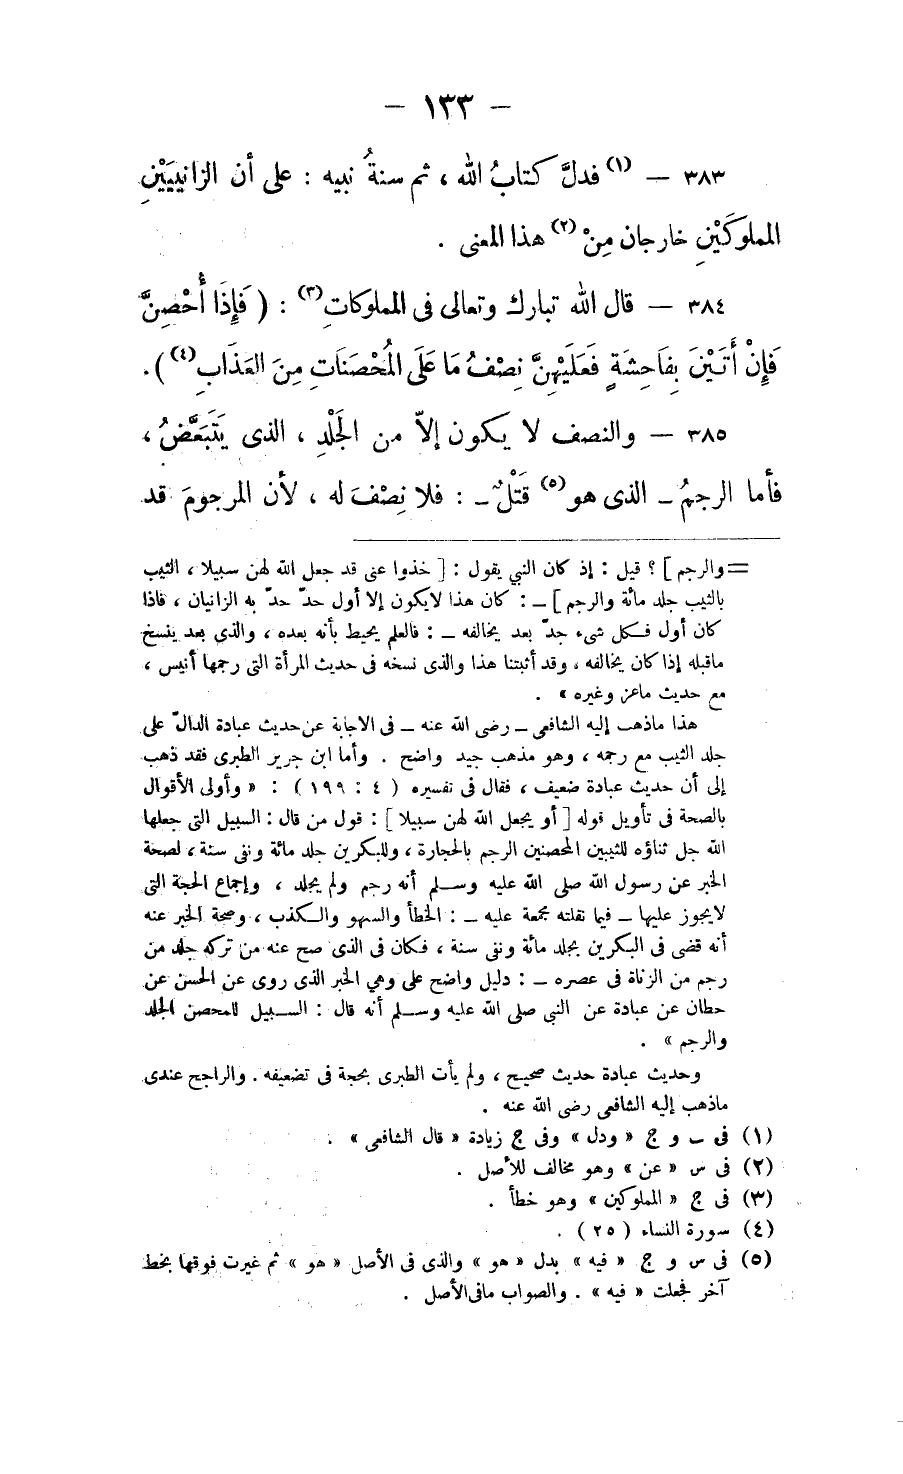 — ١٣٣ —
٣٨٣ — (١) فدلَّ كتابُ الله ، ثم سنةُ نبيه : على أن الزانِيَيْنِ
المملوكَيْنِ خارجان مِنْ (٢) هذا المعنى .
٣٨٤ — قال الله تبارك وتعالى فى المملوكاتِ (٣) : ( فَإِذَا أُحْصِنَّ
فَإِنْ أَتَيْنَ بِفَاحِشَةٍ فَعَلَيْهِنَّ نِصْفُ مَا عَلَى الْمُحْصَنَاتِ مِنَ العَذَابِ (٤) ) .
٣٨٥ — والنصف لا يكون إلاّ من الجَلْدِ ، الذى يَتَبَعَّضُ ،
فأما الرجمُ ــ الذى هو (٥) قَتْلٌ ــ : فلا نِصْفَ له ، لأن المرجومَ قد
= والرجم ] ؟ قيل : إذ كان النبي يقول : [ خذوا عنى قد جعل الله لهن سبيلا ، الثيب
بالثيب جلد مائة والرجم ] ــ : كان هذا لايكون إلا أول حدّ حدّ به الزانيان ، فاذا
كان أول فكل شىء جدّ بعد يخالفه ــ : فالعلم يحيط بأنه بعده ، والذي بعد ينسخ
ماقبله إذا كان يخالفه ، وقد أثبتنا هذا والذى نسخه فى حديث المرأة التى رجمها أنيس ،
مع حديث ماعز وغيره » .
هذا ماذهب إليه الشافعى ــ رضى الله عنه ــ فى الاجابة عن حديث عبادة الدالّ على
جلد الثيب مع رجمه ، وهو مذهب جيد واضح . وأما ابن جرير الطبرى فقد ذهب
إلى أن حديث عبادة ضعيف ، فقال فى تفسيره ( ٤ : ١٩٩ ) : « وأولى الأقوال
بالصحة فى تأويل قوله [ أو يجعل الله لهن سبيلا ] : قول من قال : السبيل التى جعلها
الله جل ثناؤه للثيبين المحصنين الرجم بالحجارة ، وللبكرين جلد مائة ونفى سنة ، لصحة
الخبر عن رسول الله صلى الله عليه وسلم أنه رجم ولم يجلد ، وإجماع الحجة التى
لايجوز عليها ــ فيما نقلته مجمعة عليه ــ : الخطأ والسهو والكذب ، وصحة الخبر عنه
أنه قضى فى البكرين بجلد مائة ونفى سنة ، فكان فى الذى صح عنه من تركه جلد من
رجم من الزناة فى عصره ــ : دليل واضح على وهي الخبر الذى روى عن الحسن عن
حطان عن عبادة عن النبي صلى الله عليه وسلم أنه قال : السبيل للمحصن الجلد
والرجم » .
وحديث عبادة حديث صحيح ، ولم يأت الطبرى بحجة فى تضعيفه . والراجح عندى
ماذهب إليه الشافعى رضى الله عنه .
(١) فى ب و ج « ودل » وفى ج زيادة « قال الشافعى » .
(٢) فى س « عن » وهو مخالف للأصل .
(٣) فى ج « المملوكين » وهو خطأ .
(٤) سورة النساء ( ٢٥ ) .
(٥) فى س و ج « فيه » بدل « هو » والذى فى الأصل « هو » ثم غيرت فوقها بخط
آخر فجعلت « فيه » . والصواب مافى الأصل .